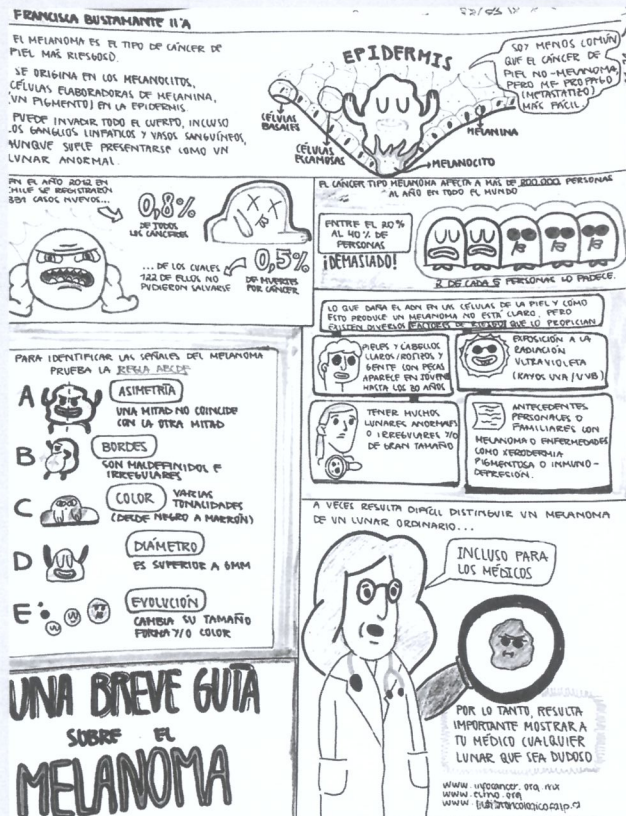 FRANCISCA BUSTAMANTE II°A
EL MELANOMA ES EL TIPO DE CÁNCER DE
PIEL MÁS RIESGOSO.
SE ORIGINA EN LOS MELANOCITOS,
CÉLULAS ELABORADORAS DE MELANINA,
(UN PIGMENTO) EN LA EPIDERMIS
PUEDE INVADIR TODO EL CUERPO, INCLUSO
LOS GANGLIOS LINFÁTICOS Y VASOS SANGUÍNEOS,
AUNQUE SUELE PRESENTARSE COMO UN
LUNAR ANORMAL.
EPIDERMIS
CÉLULAS
BASALES
CÉLULAS
ESCAMOSAS
MELANINA
MELANOCITO
SOY MENOS COMÚN
QUE EL CÁNCER DE
PIEL NO-MELANOMA,
PERO ME PROPAGO
(METASTATIZO)
MÁS FÁCIL.
EN EL AÑO 2012 EN
CHILE SE REGISTRARON
CASOS NUEVOS...
0,8%
DE TODOS
LOS CÁNCERES
... DE LOS CUALES
122 DE ELLOS NO
PUDIERON SALVARSE
0,5%
DE MUERTES
POR CÁNCER
EL CÁNCER TIPO MELANOMA AFECTA A MÁS DE 200.000 PERSONAS
AL AÑO EN TODO EL MUNDO
ENTRE EL 20%
AL 40% DE
PERSONAS
¡DEMASIADO!
2 DE CADA 5 PERSONAS LO PADECE.
LO QUE DAÑA EL ADN EN LAS CÉLULAS DE LA PIEL Y CÓMO
ESTO PRODUCE UN MELANOMA NO ESTÁ CLARO, PERO
EXISTEN DIVERSOS FACTORES DE RIESGO QUE LO PROPICIAN
PIELES Y CABELLOS
CLAROS/ROJIZOS Y
GENTE CON PECAS
APARECE EN JÓVENES
HASTA LOS 30 AÑOS
EXPOSICIÓN A LA
RADIACIÓN
ULTRAVIOLETA
(RAYOS UVA/UVB)
TENER MUCHOS
LUNARES ANORMALES
O IRREGULARES Y/O
DE GRAN TAMAÑO
ANTECEDENTES
PERSONALES O
FAMILIARES CON
MELANOMA O ENFERMEDADES
COMO XERODERMIA
PIGMENTOSA O INMUNO-
DEPRESIÓN.
PARA IDENTIFICAR LAS SEÑALES DEL MELANOMA
PRUEBA LA REGLA ABCDE
A ASIMETRÍA
UNA MITAD NO COINCIDE
CON LA OTRA MITAD
B BORDES
SON MALDEFINIDOS E
IRREGULARES
C COLOR VARIAS
TONALIDADES
(DESDE NEGRO A MARRÓN)
D DIÁMETRO
ES SUPERIOR A 6MM
E EVOLUCIÓN
CAMBIA SU TAMAÑO
FORMA Y/O COLOR
UNA BREVE GUÍA
SOBRE EL
MELANOMA
A VECES RESULTA DIFÍCIL DISTINGUIR UN MELANOMA
DE UN LUNAR ORDINARIO...
INCLUSO PARA
LOS MÉDICOS
POR LO TANTO, RESULTA
IMPORTANTE MOSTRAR A
TU MÉDICO CUALQUIER
LUNAR QUE SEA DUDOSO
www.infocancer.org.mx